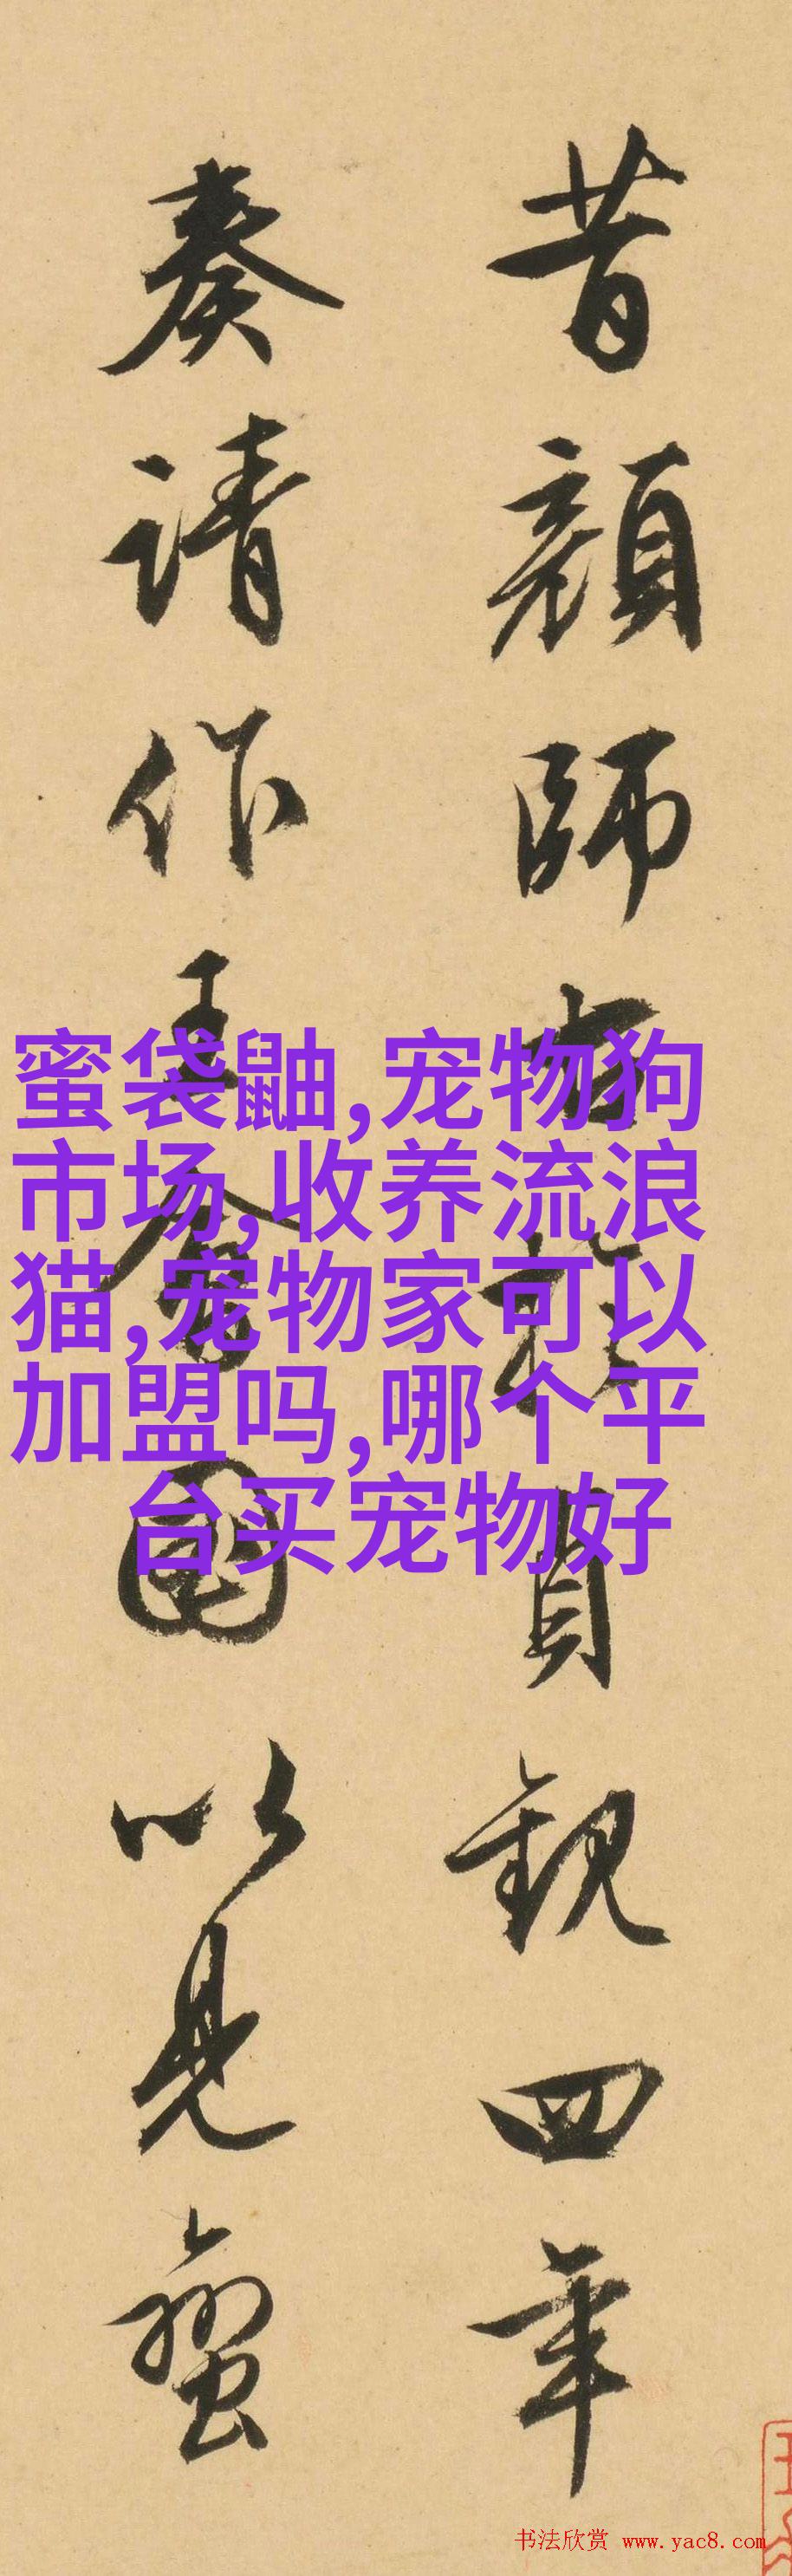 昔顔師古於貞観四年
奏請作王會圖以見蠻
蜜袋鼬,宠物狗
市场,收养流浪
猫,宠物家可以
加盟吗,哪个平
台买宠物好
书法欣赏 www.yac8.com